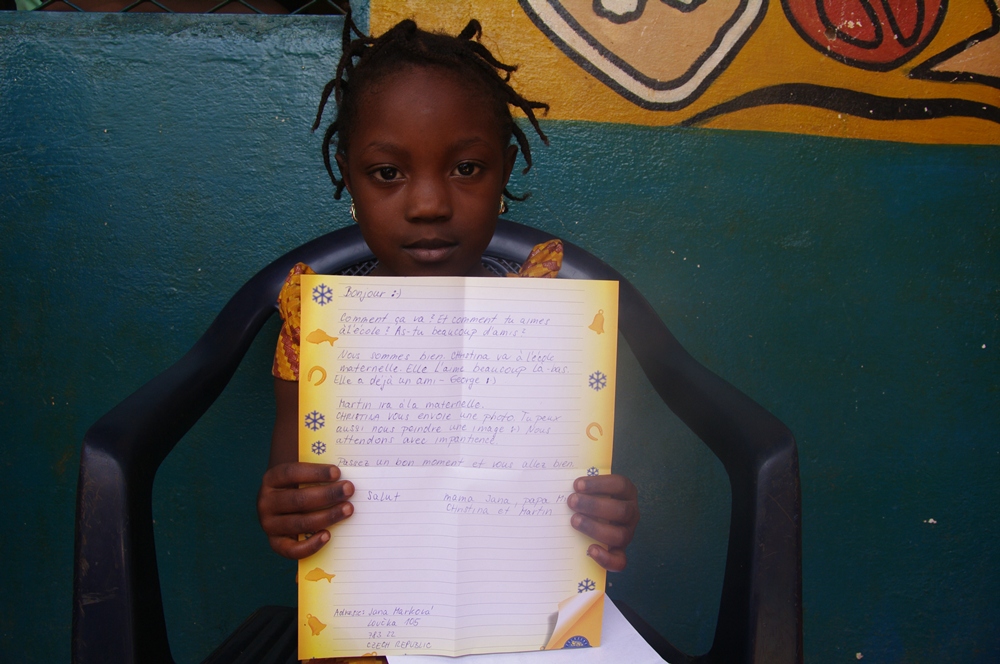 Bonjour :)
Comment ça va? Et comment tu aimes
à l'école? As-tu beaucoup d'amis?
Nous sommes bien. Christina va à l'école
maternelle. Elle l'aime beaucoup là-bas
Elle a déjà un ami - George :)
Martin ira à la maternelle.
CHRISTINA vous envoie une photo. Tu peux
aussi nous peindre une image :) Nous
attendons avec impatience.
Passez un bon moment et vous allez bien.
Salut mama Jana, papa M
Christina et Martin
Adresse: Jana Marková
Loučka 105
783 22
CZECH REPUBLIC